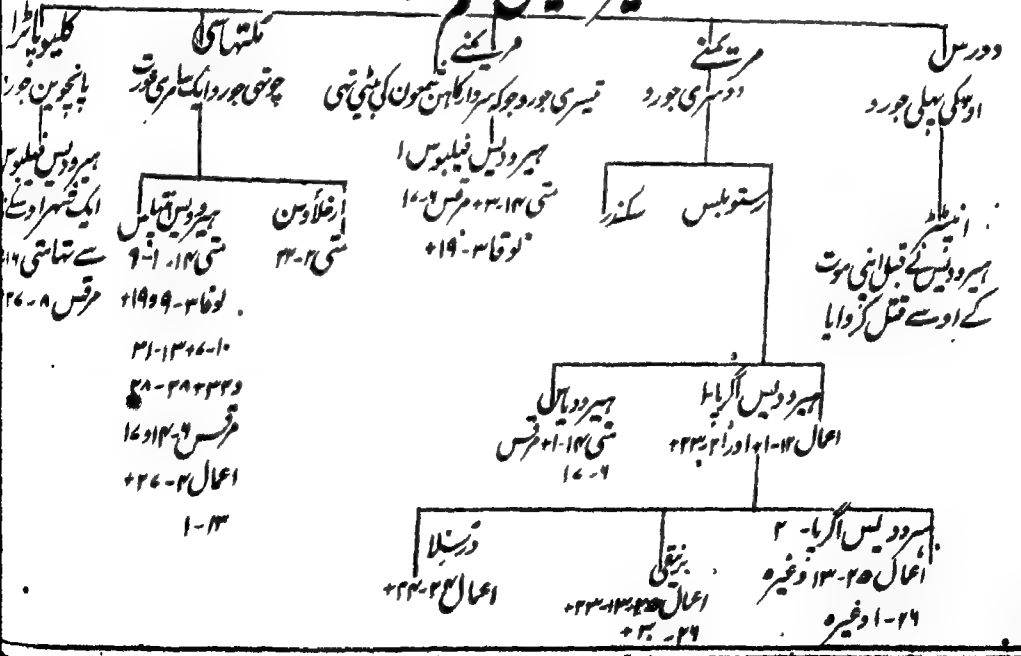 دورس
اوسکی پہلی جورو
انپٹر
ہیرودیس نے قبل اپنی موت
کے اوسے قتل کروایا
مریمنے
دوسری جورو
رستوبلس
سکندر
ہیرودیس اگرپا-۱
اعمال ۱۲-۱+ اور ۲۱ ب ۲۳+
ہیرودیاس
متی ۱۴-۱+ مرقس
۶-۱۷
ہیرودیس اگرپا-۲
اعمال ۲۵-۱۳ وغیرہ
۲۶-۱ وغیرہ
برنیقی
اعمال ۲۵-۱۳-۲۳+
۲۶-۳۰+
درسلا
اعمال ۲۴-۲۴+
مریمنے
تیسری جورو جو کہ سردار کاہن شمعون کی بیٹی تہی
ہیرودیس فیلبوس ۱
متی ۱۴-۳+ مرقس ۶-۱۷
لوقا ۳-۱۹+
ملتہاسی
چوتہی جورو ایک سامری عورت
ارخلاؤس
متی ۲-۲۲
ہیرودیس انتپاس
متی ۱۴-۱-۹
لوقا ۳-۹ و ۱۹+
۱۰-۷+۱۳-۳۱
مرقس ۶-۱۴ و ۱۷
اعمال ۴-۲۷+
۱۳-۱
کلیوپاٹرا
پانچوین جورو
ہیرودیس فیلبوس
ایک شہر اوسکے
سے تہا متی ۱۶
مرقس ۸-۲۷